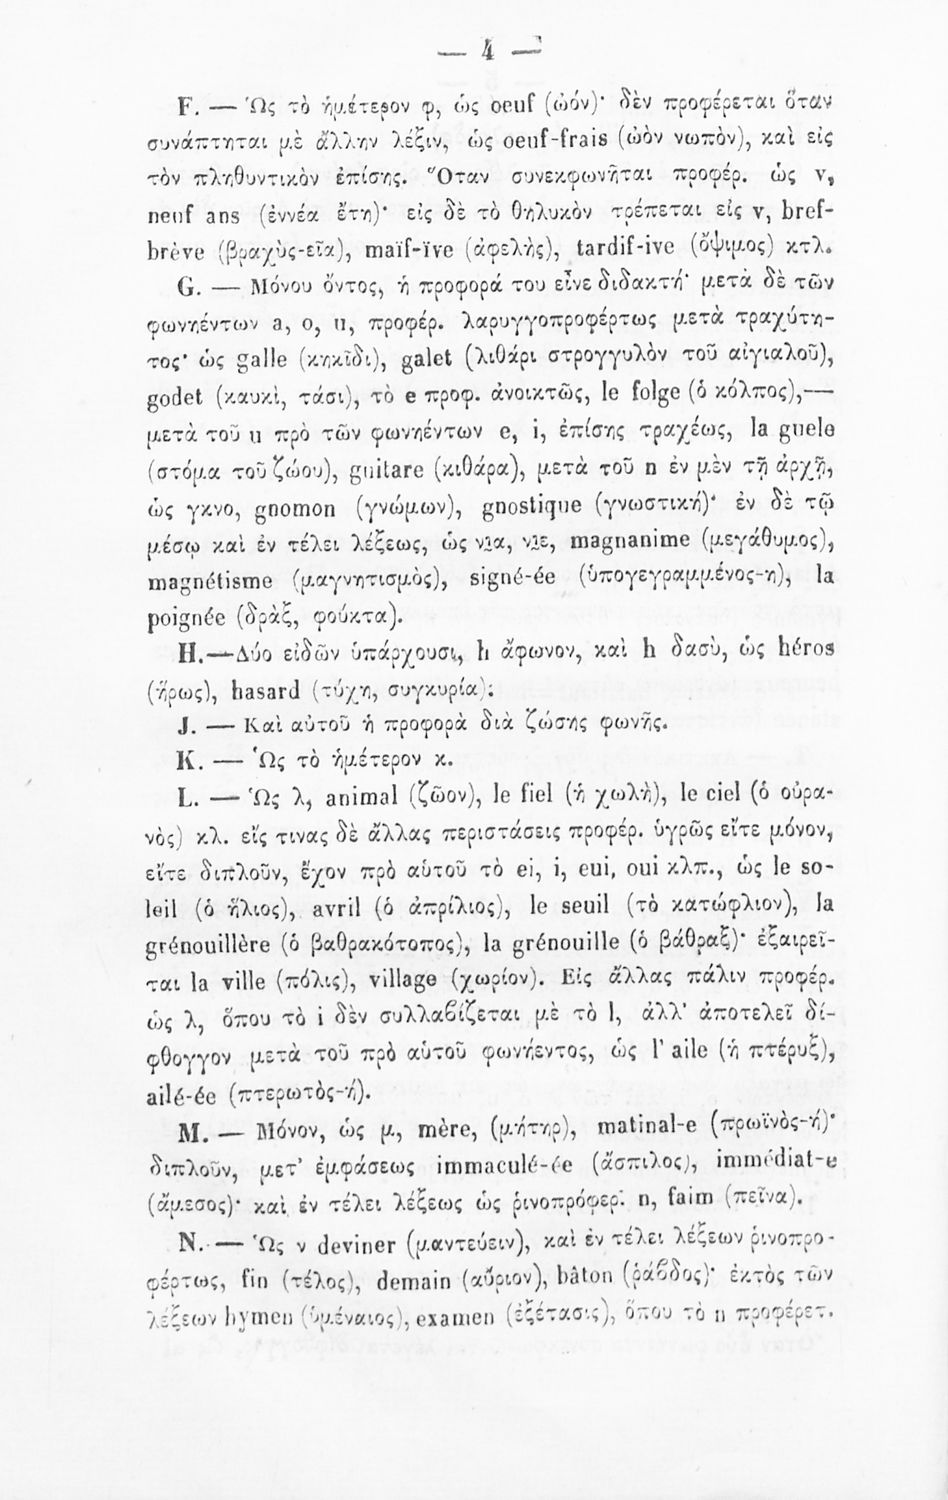 — 4 —
F. — Ὡς τὸ ἡμέτερον φ, ὡς oeuf (ὠόν)· δὲν προφέρεται ὅταν
συνάπτηται μὲ ἄλλην λέξιν, ὡς oeuf-frais (ὠὸν νωπὸν), καὶ εἰς
τὸν πληθυντικὸν ἐπίσης. Ὅταν συνεκφωνῆται προφέρ. ὡς v,
neuf ans (ἐννέα ἔτη)· εἰς δὲ τὸ θηλυκὸν τρέπεται εἰς v, bref-
brève (βραχὺς-εῖα), maïf-ïve (ἀφελὴς), tardif-ive (ὄψιμος) κτλ.
G. — Μόνου ὄντος, ἡ προφορά του εἶνε διδακτή· μετὰ δὲ τῶν
φωνηέντων a, o, u, προφέρ. λαρυγγοπροφέρτως μετὰ τραχύτη-
τος· ὡς galle (κηκῖδι), galet (λιθάρι στρογγυλὸν τοῦ αἰγιαλοῦ),
godet (καυκὶ, τάσι), τὸ e προφ. ἀνοικτῶς, le folge (ὁ κόλπος),—
μετὰ τοῦ u πρὸ τῶν φωνηέντων e, i, ἐπίσης τραχέως, la guele
(στόμα τοῦ ζώου), guitare (κιθάρα), μετὰ τοῦ n ἐν μὲν τῇ ἀρχῇ,
ὡς γκνο, gnomon (γνώμων), gnostique (γνωστική)· ἐν δὲ τῷ
μέσῳ καὶ ἐν τέλει λέξεως, ὡς νια, νιε, magnanime (μεγάθυμος),
magnétisme (μαγνητισμὸς), signé-ée (ὑπογεγραμμένος-η), la
poignée (δρὰξ, φούκτα).
H.—Δύο εἰδῶν ὑπάρχουσι, h ἄφωνον, καὶ h δασὺ, ὡς héros
(ἥρως), hasard (τύχη, συγκυρία);
J. — Καὶ αὐτοῦ ἡ προφορὰ διὰ ζώσης φωνῆς.
K. — Ὡς τὸ ἡμέτερον κ.
L. — Ὡς λ, animal (ζῶον), le fiel (ἡ χωλὴ), le ciel (ὁ οὐρα-
νὸς) κλ. εἴς τινας δὲ ἄλλας περιστάσεις προφέρ. ὑγρῶς εἴτε μόνον,
εἴτε διπλοῦν, ἔχον πρὸ αὑτοῦ τὸ ei, i, eui, oui κλπ., ὡς le so-
leil (ὁ ἥλιος), avril (ὁ ἀπρίλιος), le seuil (τὸ κατώφλιον), la
grénouillère (ὁ βαθρακότοπος), la grénouille (ὁ βάθραξ)· ἐξαιρεῖ-
ται la ville (πόλις), village (χωρίον). Εἰς ἄλλας πάλιν προφέρ.
ὡς λ, ὅπου τὸ i δὲν συλλαβίζεται μὲ τὸ l, ἀλλ' ἀποτελεῖ δί-
φθογγον μετὰ τοῦ πρὸ αὑτοῦ φωνήεντος, ὡς l' aile (ἡ πτέρυξ),
ailé-ée (πτερωτὸς-ή).
M. — Μόνον, ὡς μ, mère, (μήτηρ), matinal-e (πρωϊνὸς-ή)·
διπλοῦν, μετ' ἐμφάσεως immaculé-ée (ἄσπιλος), immédiat-e
(ἄμεσος)· καὶ ἐν τέλει λέξεως ὡς ῥινοπρόφερ. n, faim (πεῖνα).
N. — Ὡς ν deviner (μαντεύειν), καὶ ἐν τέλει λέξεων ῥινοπρο-
φέρτως, fin (τέλος), demain (αὔριον), bâton (ῥάβδος)· ἐκτὸς τῶν
λέξεων hymen (ὑμέναιος), examen (ἐξέτασις), ὅπου τὸ n προφέρετ.